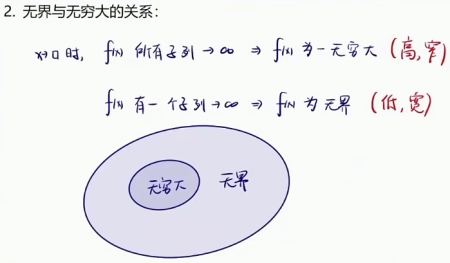 2. 无界与无穷大的关系：
x→□时, f(x) 所有子列→∞ ⇒ f(x) 为一无穷大 (高,窄)
f(x) 有一个子列→∞ ⇒ f(x) 为无界 (低,宽)
无穷大 无界